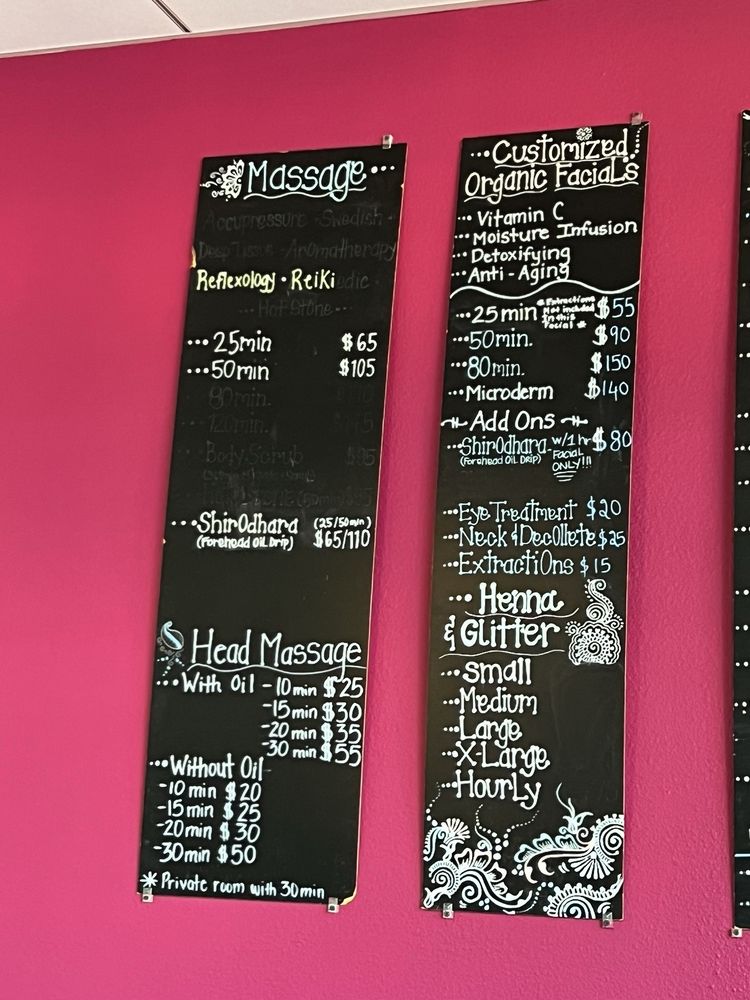 Massage
Accupressure - Swedish -
Deep Tissue - Aromatherapy
Reflexology • Reiki
- Hot Stone -
25min $65
50min $105
80min.
120min.
Body Scrub
ShirOdhara (25/50min)
(Forehead Oil Drip) $65/110
Head Massage
With Oil - 10 min $25
- 15 min $30
- 20 min $35
- 30 min $55
Without Oil
- 10 min $20
- 15 min $25
- 20 min $30
- 30 min $50
* Private room with 30 min
Customized
Organic Facials
Vitamin C
Moisture Infusion
Detoxifying
Anti - Aging
25 min * Extractions Not included In this Facial * $55
50min. $90
80min. $150
Microderm $140
Add Ons
ShirOdhara w/1 hr $80
(Forehead Oil Drip) Facial
ONLY!!!
Eye Treatment $20
Neck & Decollete $25
Extractions $15
Henna
& Glitter
Small
Medium
Large
X-Large
Hourly